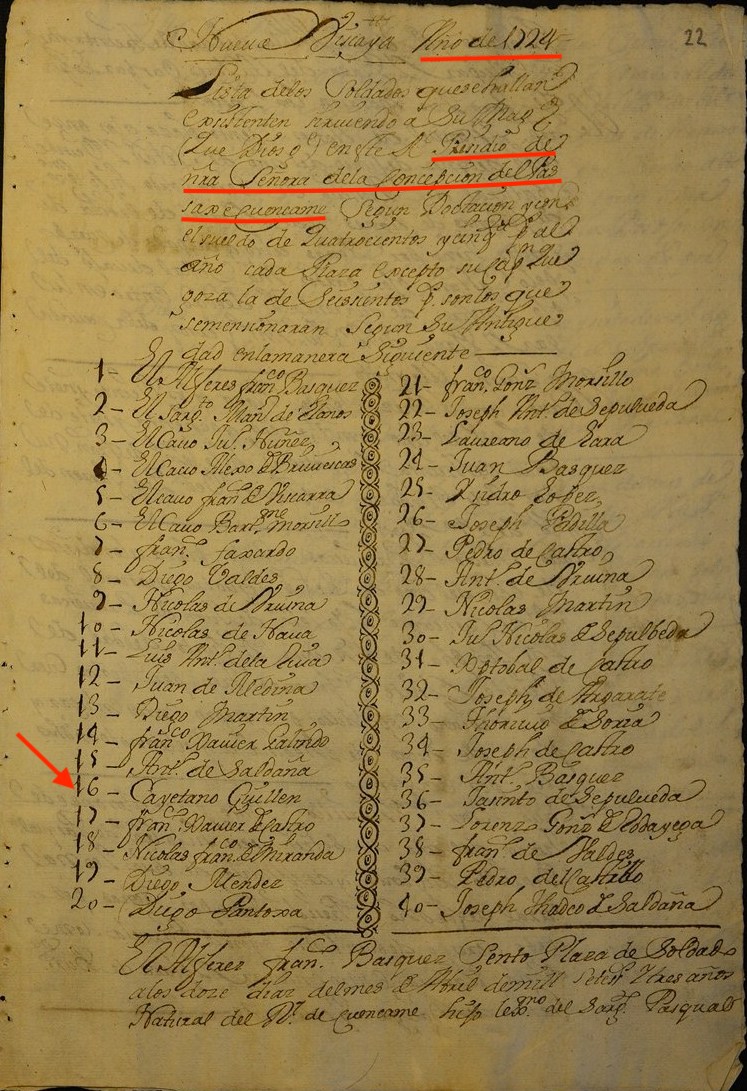 Nueva Viscaya Año de 1724
22
Lista delos Soldados quesehallan
existenten siruiendo a Su Mag.d
(Que Dios g.e) en este R.l Presidio de
nra Señora dela Concepcion del Pas
saxe Cuencame Segun Poblacion y con
el sueldo de Quatrocientos y cinq.ta p.s al
año cada Plaza excepto su Cap.n Que
goza la de Seissientos p.s son los que
semensionaran Segun Su Antigue
dad enlamanera Siguiente
1- El Alferes fran.co Basquez
2- El Sarg.to Man.l de Llanos
3- El Cauo Ju.o Nuñez
4- El Cauo Alexo de Bruiescas
5- El cauo fran.co de Viscarra
6- El Cauo Bart.me Morsillo
7- fran.co faxardo
8- Diego Valdes
9- Nicolas de Vruina
10- Nicolas de Naua
11- Luis Ant.o dela Cueua
12- Juan de Medina
13- Diego Martin
14- fran.co Xavier Galindo
15- Ant.o de Saldaña
16- Cayetano Guillen
17- fran.co Xauier de Castro
18- Nicolas fran.co de Miranda
19- Diego Mendez
20- Diego Pantoxa
21- fran.co Gonz Morsillo
22- Joseph Ant.o de Sepulueda
23- Laureano de Lara
24- Juan Basquez
25- Ysidro Lopez
26- Joseph Padilla
27- Pedro de Castro
28- Ant.o de Vruina
29- Nicolas Martin
30- Ju.o Nicolas de Sepulbeda
31- Xptobal de Castro
32- Joseph de Argarate
33- de Soria
34- Joseph de Castro
35- Ant.o Basquez
36- Jasinto de Sepulueda
37- Lorenzo Gonz de
38- fran.co de Valdes
39- Pedro del Castillo
40- Joseph Thadeo de Saldaña
El Alferez fran.co Basquez Sento Plaza de Soldado
alos doze dias delmes de Abril demill Setes.s y tres años
Natural del R.l de Cuencame hijo lex.mo del Sarg.to Pasqual